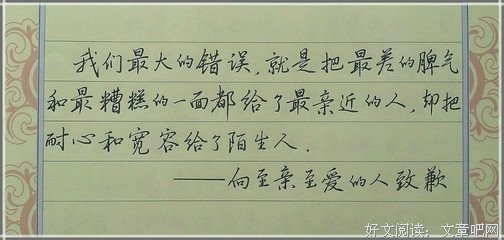 我们最大的错误,就是把最差的脾气
和最糟糕的一面都给了最亲近的人,却把
耐心和宽容给了陌生人.
——向至亲至爱的人致歉
好文阅读:文章吧网